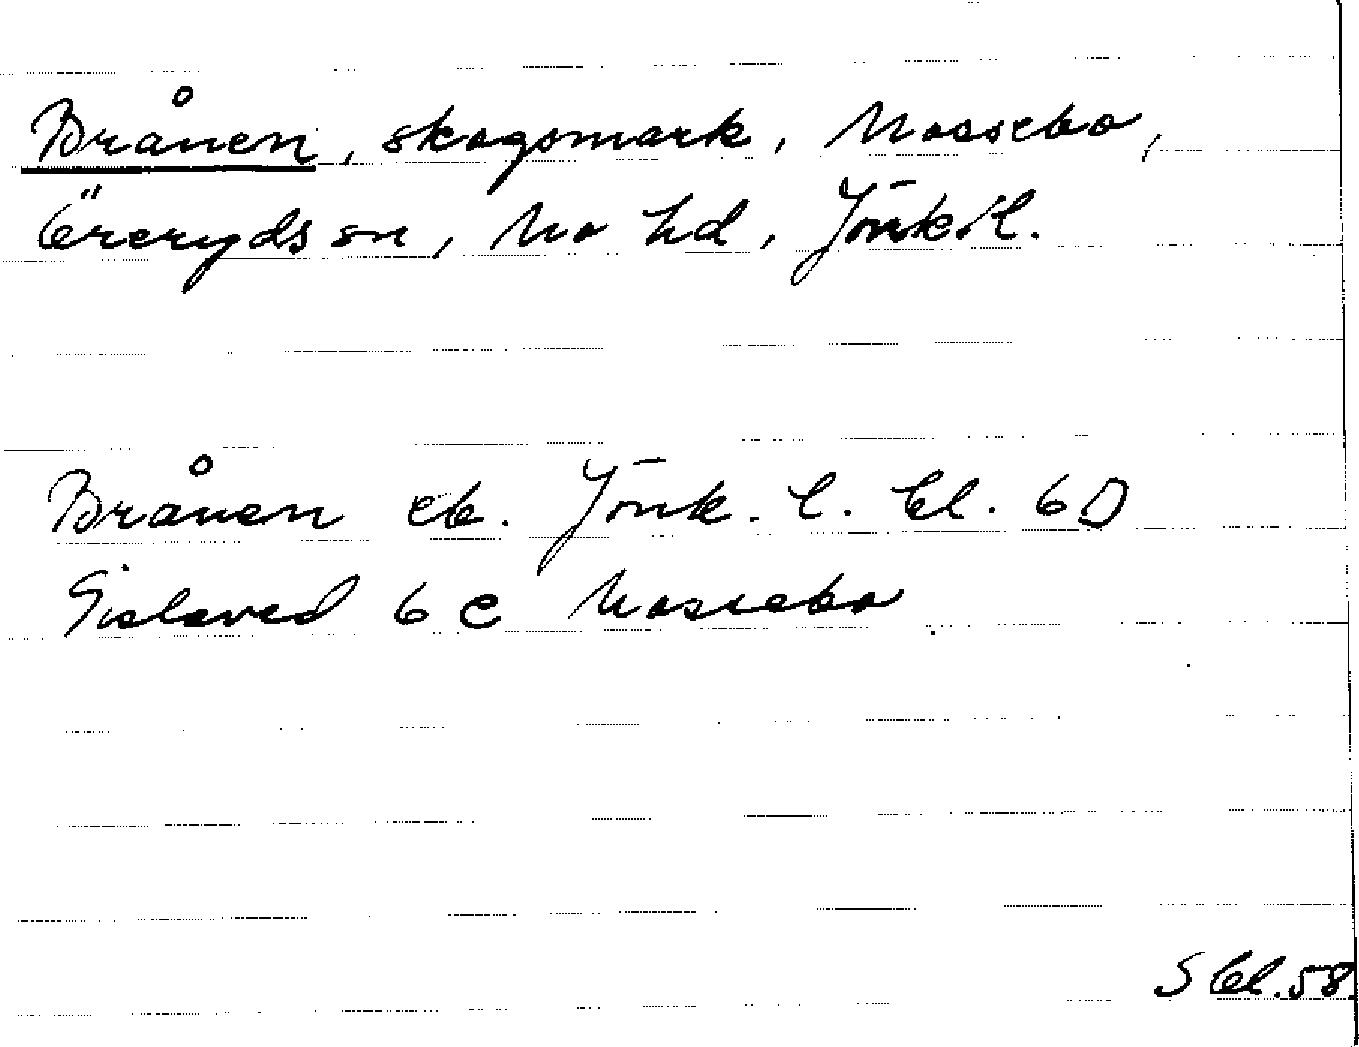 Brånen, skogsmark, Mossebo,
Öreryds sn, Mo hd, Jönk. l.
Brånen eb. Jönk. l. bl. 6D
Gislaved 6 C Mossebo
S bl. 58